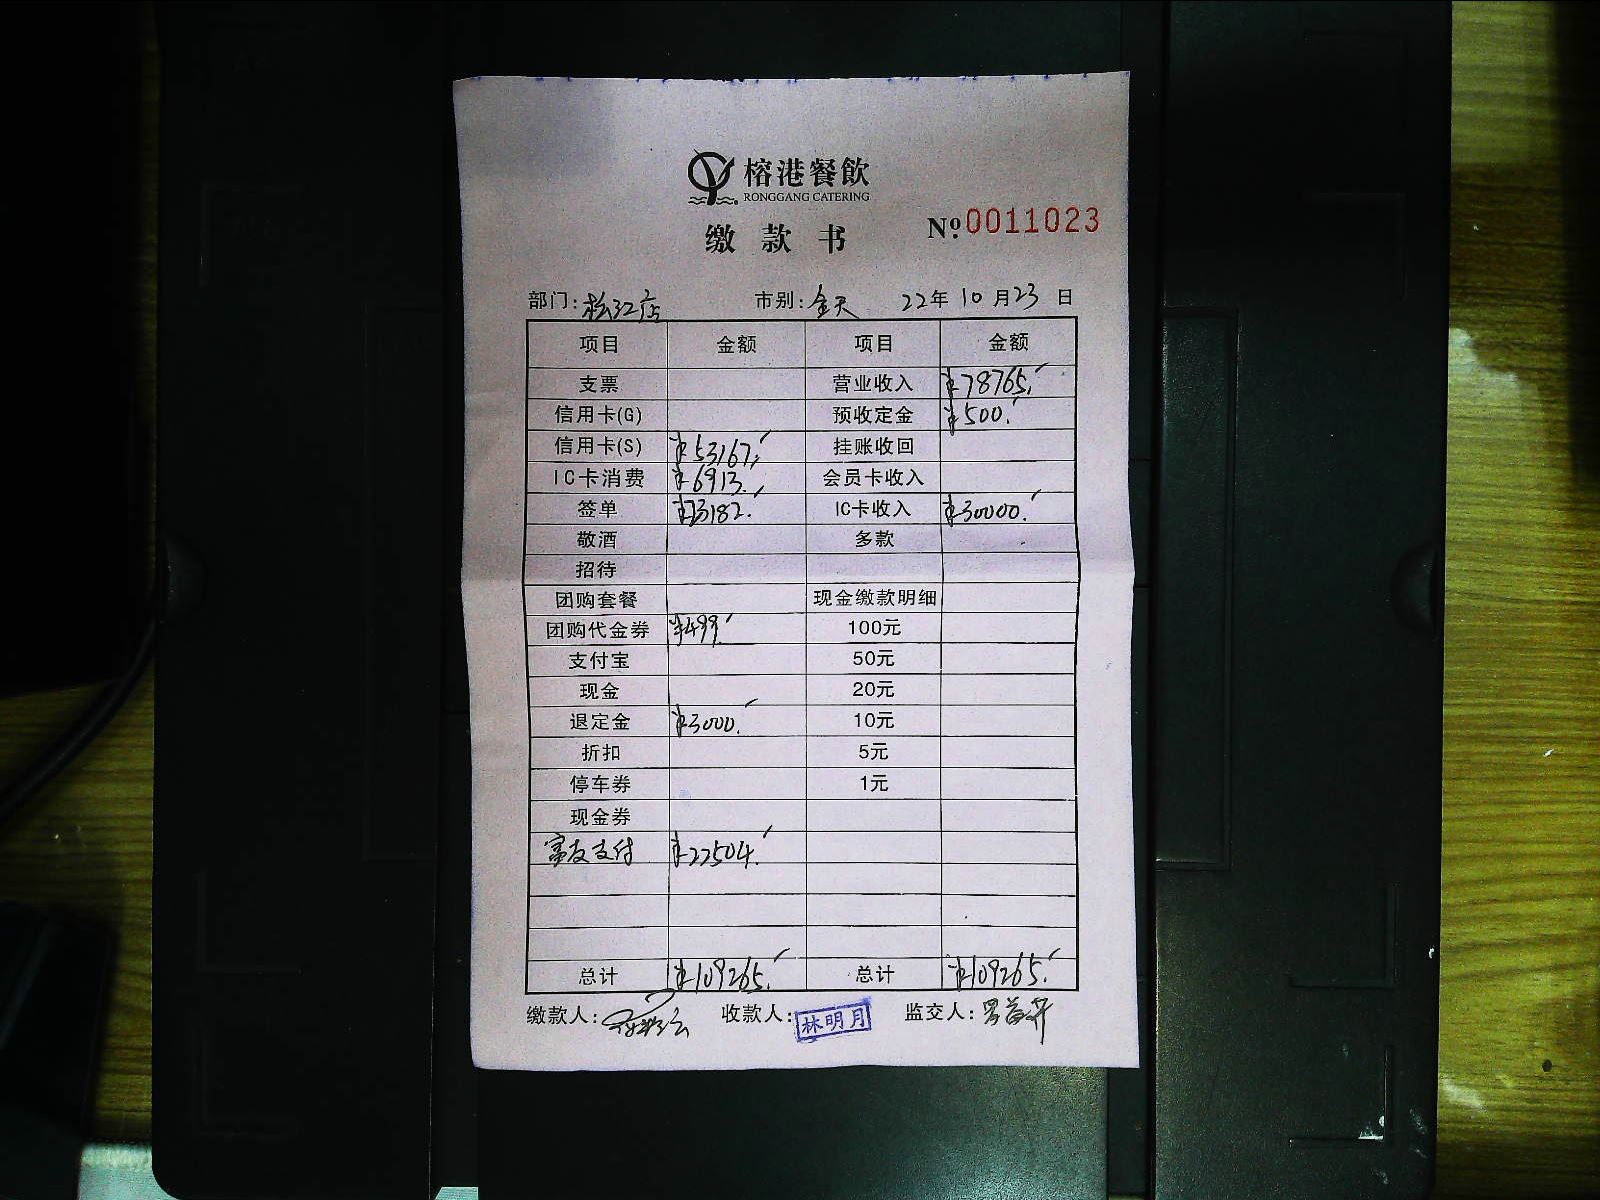 榕港餐飲
RONGGANG CATERING
缴款书
№ 0011023
部门: 松江店 市别: 全天 22年10月23日
项目 金额 项目 金额
支票 营业收入 ¥78765.
信用卡(G) 预收定金 ¥500.
信用卡(S) ¥53167. 挂账收回
IC卡消费 ¥6913. 会员卡收入
签单 ¥23182. IC卡收入 ¥30000.
敬酒 多款
招待
团购套餐 现金缴款明细
团购代金券 ¥499. 100元
支付宝 50元
现金 20元
退定金 ¥3000. 10元
折扣 5元
停车券 1元
现金券
富友支付 ¥22504.
总计 ¥109265. 总计 ¥109265.
缴款人: 收款人: 林明月 监交人: